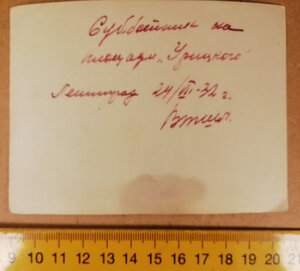 Субботник на
площади "Урицкого"
Ленинград 24/III-32 г.
9 10 11 12 13 14 15 16 17 18 19 20 21